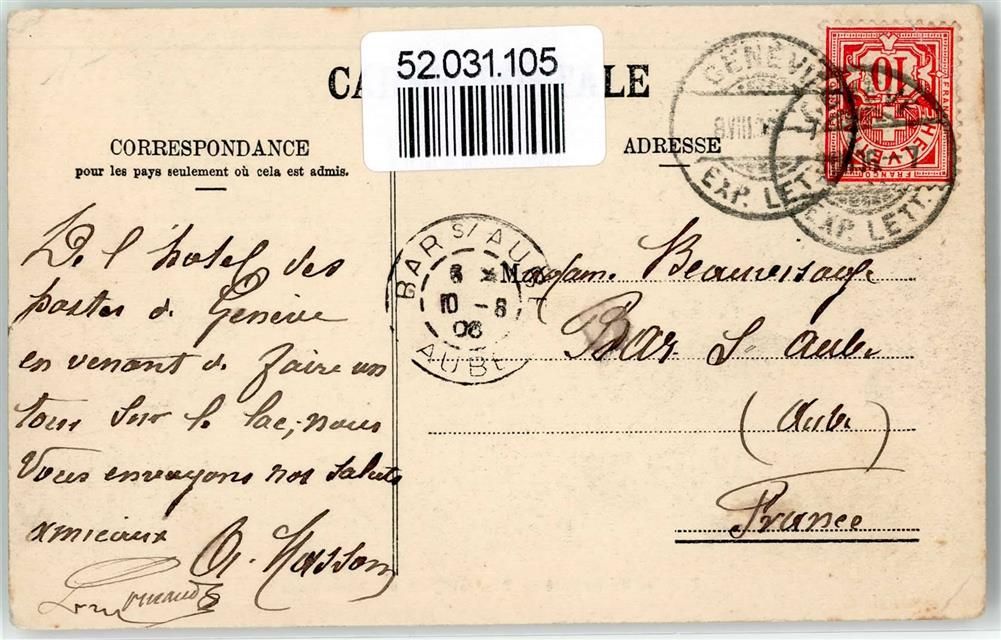 52.031.105
CA LE
CORRESPONDANCE
pour les pays seulement où cela est admis.
ADRESSE
GENÈVE
8 VIII
EXP. LETT.
EXP. LETT.
10
HELVETIA
FRANCO
BAR S/AUBE
10 - 8
06
AUBE
De l'hotel des
postes de Genève
en venant de faire un
tour sur le lac, nous
Vous envoyons nos saluts
amicaux
A. Masson
Madame Beauvisage
Bar S Aube
(Aube)
France